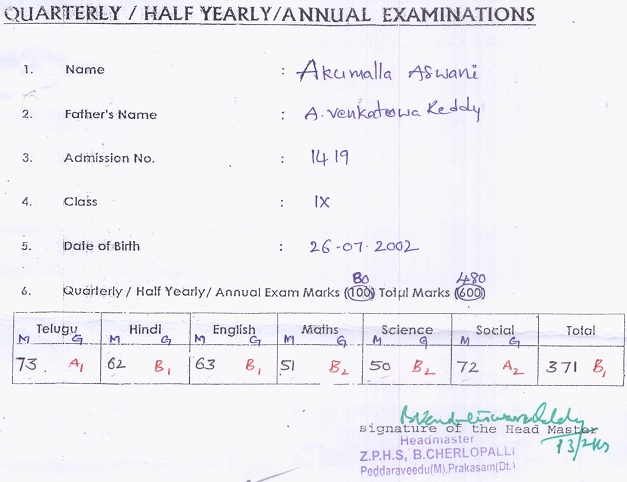 QUARTERLY / HALF YEARLY/ANNUAL EXAMINATIONS
1. Name : Akumalla Aswani
2. Father's Name : A. Venkateswa Reddy
3. Admission No. : 1419
4. Class : IX
5. Date of Birth : 26-07-2002
80 480
6. Quarterly / Half Yearly/ Annual Exam Marks (100) Total Marks (600)
Telugu Hindi English Maths Science Social Total
M G M G M G M G M G M G
73. A1 62 B1 63 B1 51 B2 50 B2 72 A2 371 B1
signature of the Head Master
Headmaster
Z.P.H.S, B.CHERLOPALLI
Peddaraveedu(M), Prakasam(Dt.)